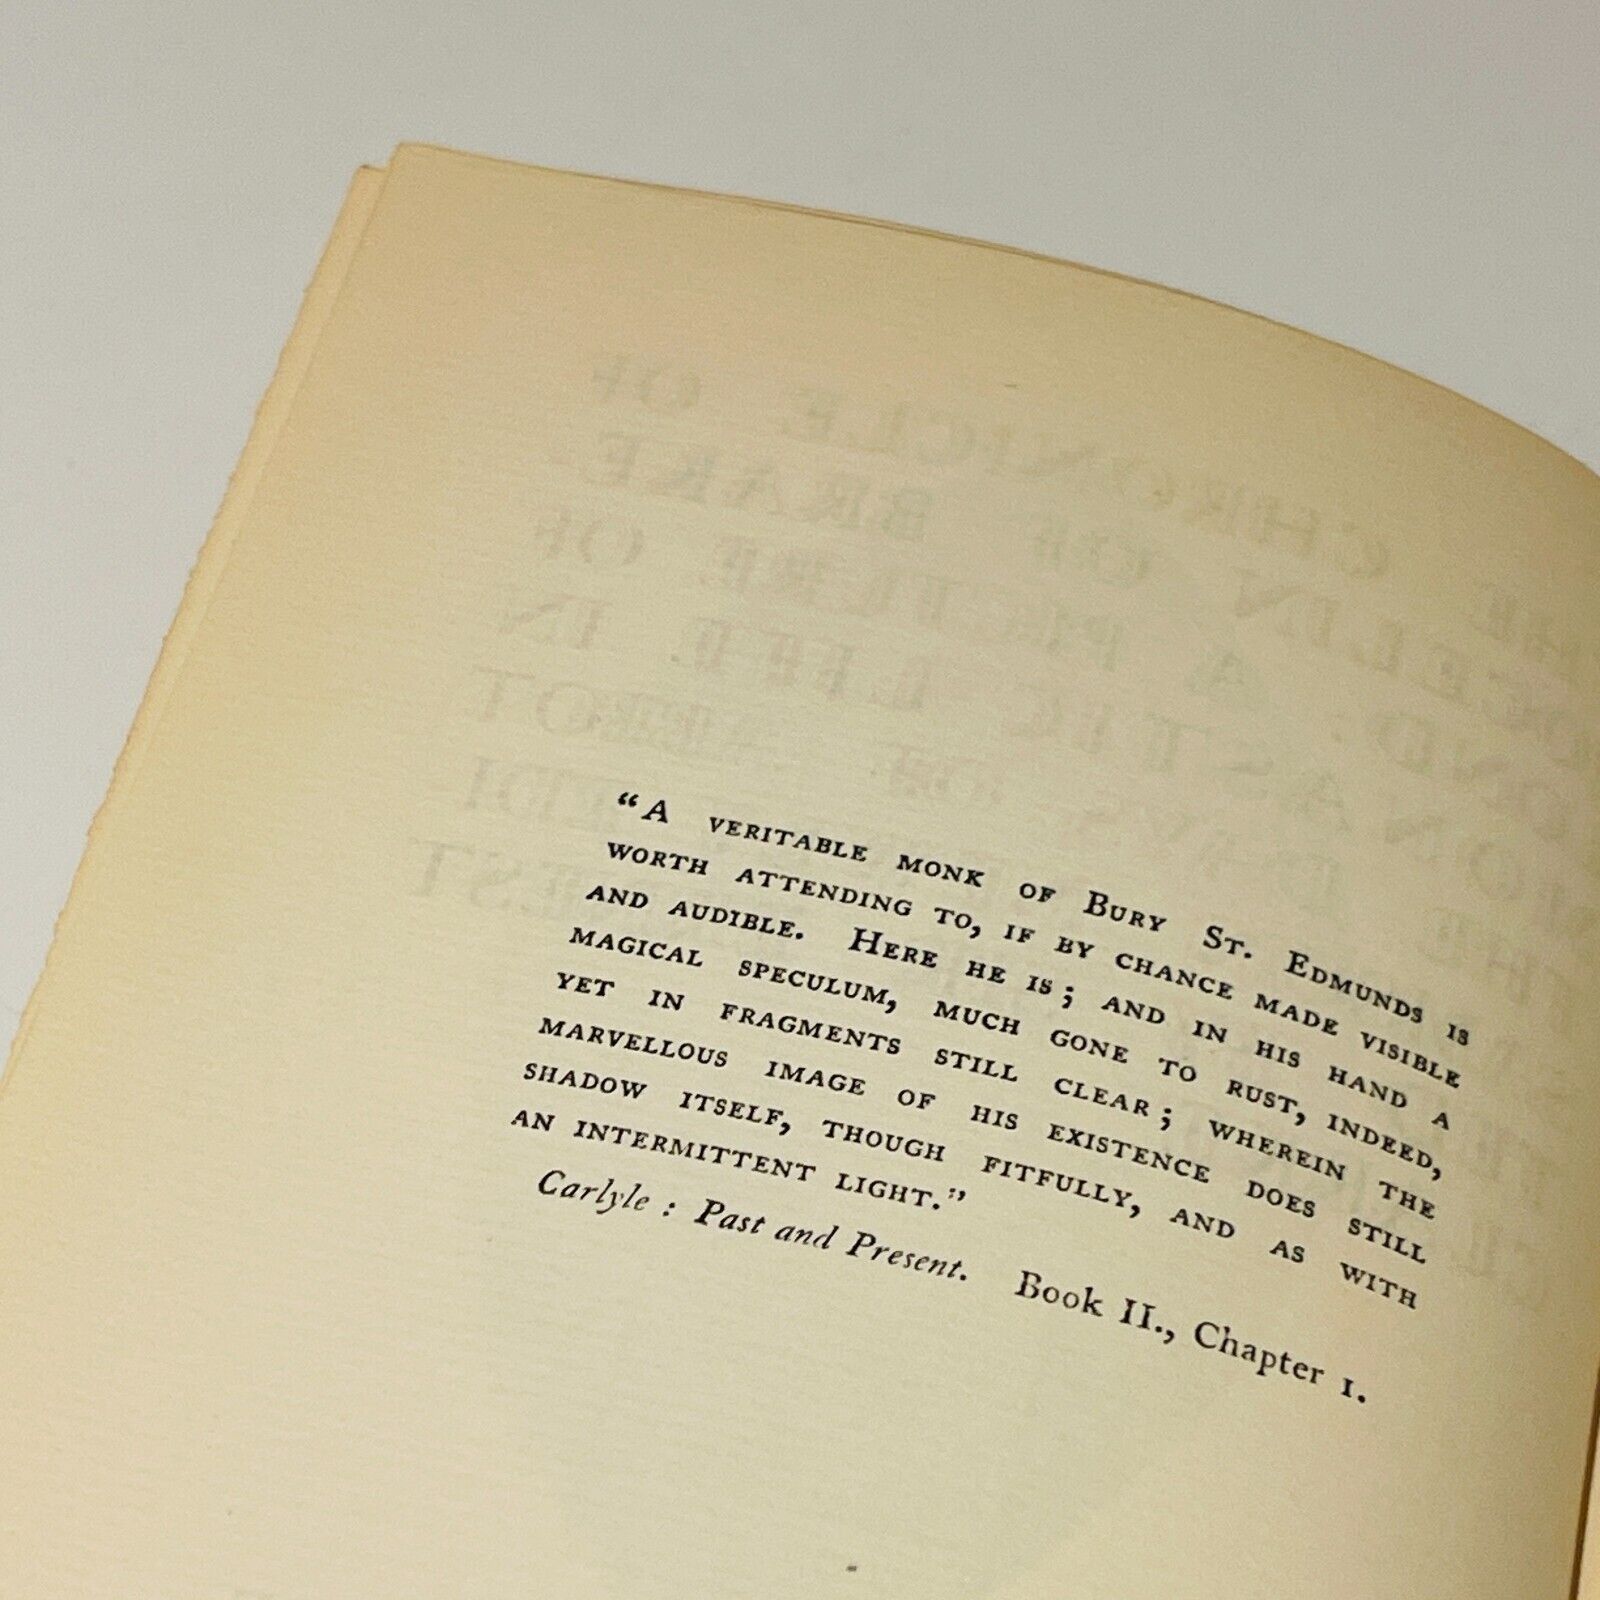 "A VERITABLE MONK OF BURY ST. EDMUNDS IS
WORTH ATTENDING TO, IF BY CHANCE MADE VISIBLE
AND AUDIBLE. HERE HE IS; AND IN HIS HAND A
MAGICAL SPECULUM, MUCH GONE TO RUST, INDEED,
YET IN FRAGMENTS STILL CLEAR; WHEREIN THE
MARVELLOUS IMAGE OF HIS EXISTENCE DOES STILL
SHADOW ITSELF, THOUGH FITFULLY, AND AS WITH
AN INTERMITTENT LIGHT."
Carlyle: Past and Present. Book II., Chapter 1.